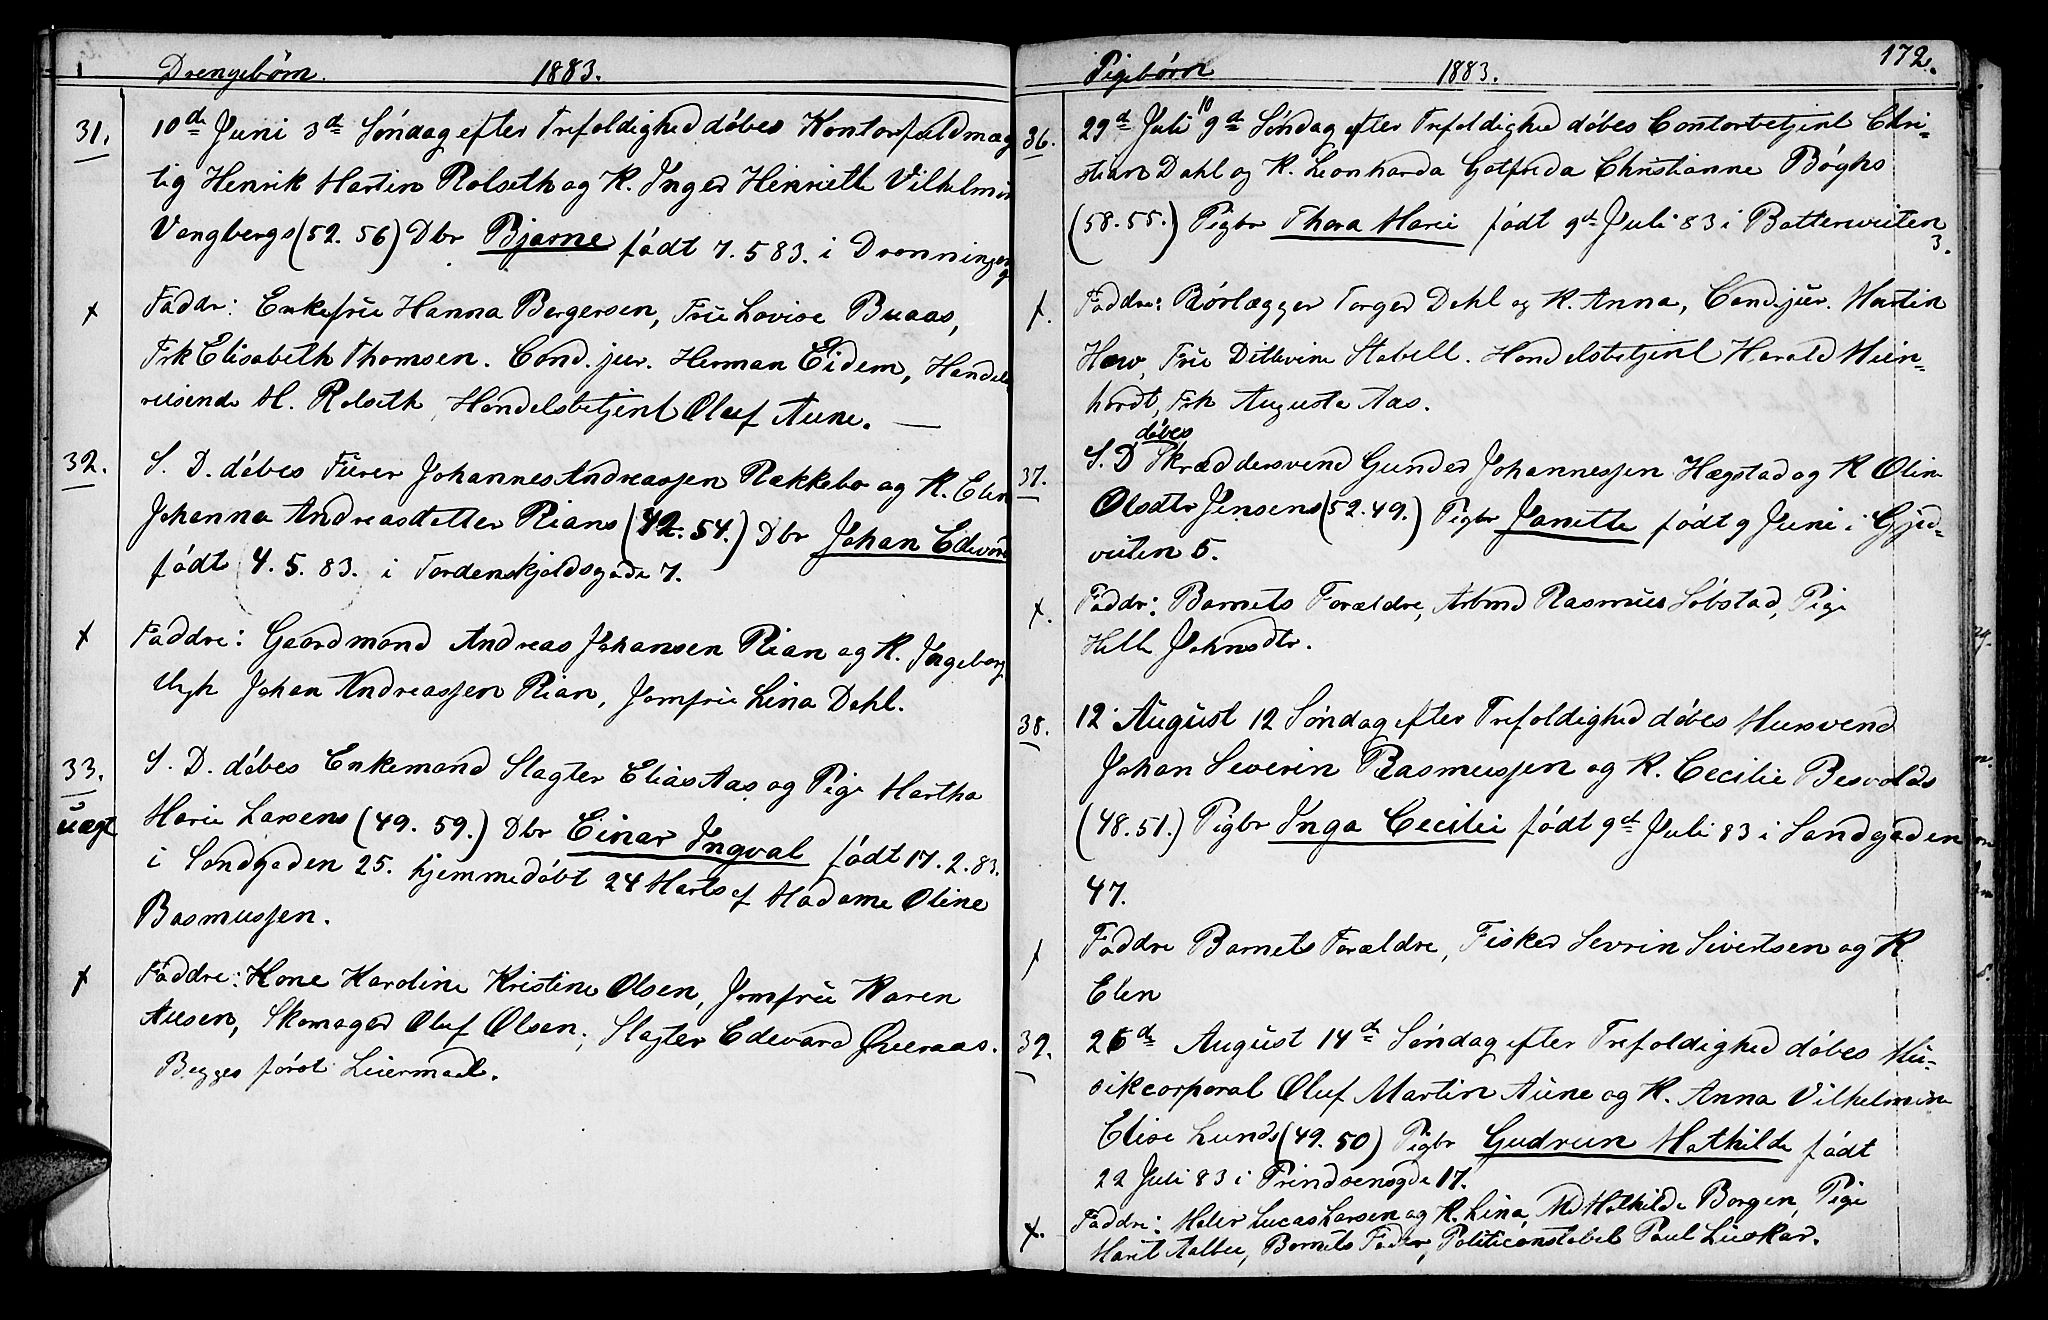 Drengebørn. 1883.
31. 10de Juni 3de Søndag efter Trefoldighed døbes Kontorfuldmæg
tig Henrik Martin Rolseth og K. Inger Henriette Vilhelmin
Vangbergs (52. 56) Dbr Bjarne født 7. 5 83. i Dronningens
g
x Faddr: Enkefru Hanna Bergersen, Fru Lovise Buaas,
Frk Elisabeth Thomsen. Cand. jur. Herman Eidem, Handels
reisende M. Rolseth, Handelsbetjent Oluf Aune.
32. S. D. døbes Furer Johannes Andreassen Rekkebo og K. Elen
Johanna Andreasdatter Rians (42. 54.) Dbr Johan Edvard
født 4. 5. 83. i Tordenskjoldsgade 7.
x Faddre: Gaardmand Andreas Johansen Rian og K. Ingeborg
Ugk Johan Andreassen Rian, Jomfru Lina Dahl.
33. S. D. døbes Enkemand Slagter Elias Aas og Pige Martha
uægt Marie Larsens (49. 59.) Dbr Einar Ingval født 17. 2. 83.
i Sandgaden 25. hjemmedøbt 24 Marts af Madame Oline
Rasmussen.
x Faddre: Kone Karoline Kristine Olsen, Jomfru Karen
Ausen, Skomager Oluf Olsen, Slagter Edevard Øveraas.
Begges først Leiermaal.
Pigebørn 1883. 172.
36. 29de Juli 10 9de Søndag efter Trefoldighed døbes Contorbetjent Chri-
stian Dahl og K. Leonharda Gotfreda Christianne Bøghs
(58. 55.) Pigbr Thora Marie født 9de Juli 83 i Batterveiten
3.
x. Faddre: Rørlægger Torger Dahl og K. Anna, Cand. jur. Martin
How, Fru Ditlevine Stabell. Handelsbetjent Harald Mein-
hardt, Frk Augusta Aas.
døbes
37. S. D Skræddersvend Gunder Johannessen Hægstad og K Olin
Olsdtr Jensens (52. 49.) Pigbr Janette født 9 Juni i Gjed-
veiten 5.
x. Faddr: Barnets Forældre, Arbmd Rasmus Søbstad, Pige
Hille Johnsdtr.
38. 12 August 12 Søndag efter Trefoldighed døbes Mursvend
Johan Severin Rasmussen og K. Cecilie Besvolds
(48. 51.) Pigbr Inga Cecilie født 9de Juli 83 i Sandgaden
47.
x Faddre Barnets Forældre, Fisker Sevrin Sivertsen og K
Elen
39. 26de August 14de Søndag efter Trefoldighed døbes Mu-
sikcorporal Oluf Martin Aune og K. Anna Vilhelmine
Elise Lunds (49. 50) Pigbr Gudrun Mathilde født
22 Juli 83 i Prindsensgde 17.
x. Faddre: Maler Lucas Larsen og K. Lina, Md Mathilde Borgen, Pige
Marit Aalbu, Barnets Fader, Politiconstabel Paul Luskar.